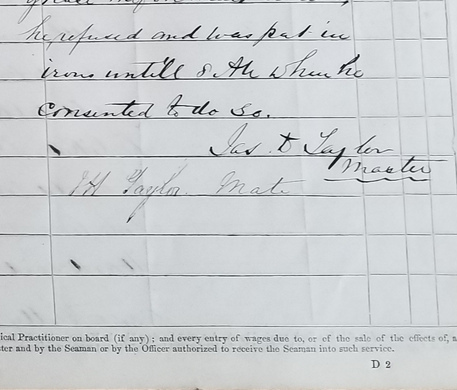 he refused and was put in
irons untill 8 AM when he
consented to do so.
Jas. D Taylor
Master
Taylor Mate
ical Practitioner on board (if any); and every entry of wages due to, or of the sale of the effects of, a
ster and by the Seaman or by the Officer authorized to receive the Seaman into such service.
D 2